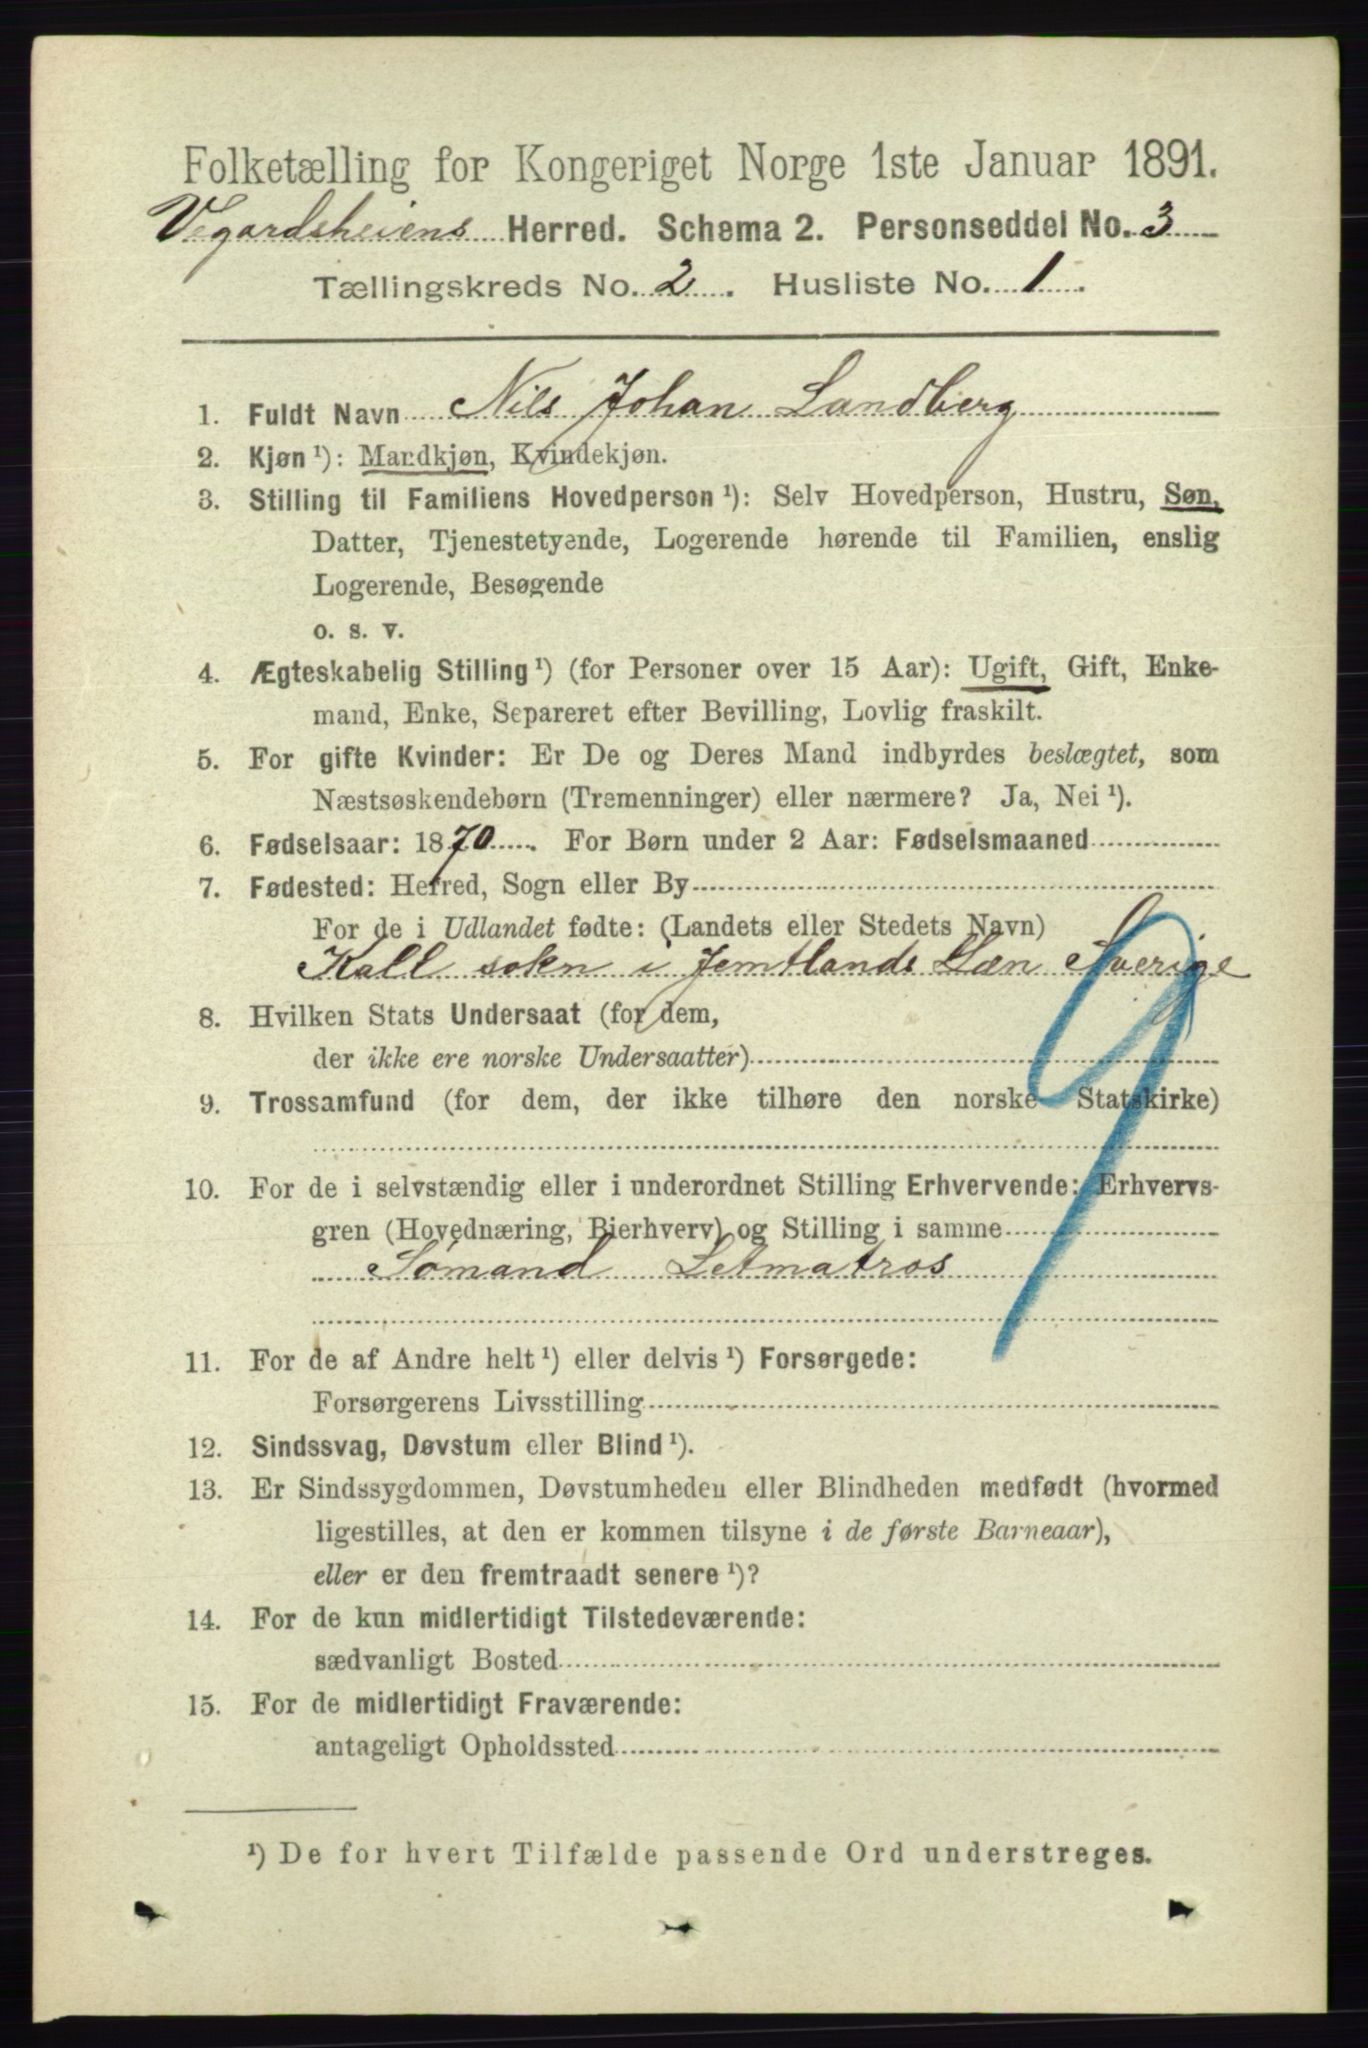 Folketælling for Kongeriget Norge 1ste Januar 1891.
Vegardsheiens Herred. Schema 2. Personseddel No. 3
Tællingskreds No. 2. Husliste No. 1.
1. Fuldt Navn Nils Johan Landberg
2. Kjøn ¹): Mandkjøn, Kvindekjøn.
3. Stilling til Familiens Hovedperson ¹): Selv Hovedperson, Hustru, Søn,
Datter, Tjenestetyende, Logerende hørende til Familien, enslig
Logerende, Besøgende
o. s. v.
4. Ægteskabelig Stilling ¹) (for Personer over 15 Aar): Ugift, Gift, Enke-
mand, Enke, Separeret efter Bevilling, Lovlig fraskilt.
5. For gifte Kvinder: Er De og Deres Mand indbyrdes beslægtet, som
Næstsøskendebørn (Tremenninger) eller nærmere? Ja, Nei ¹).
6. Fødselsaar: 1870. For Børn under 2 Aar: Fødselsmaaned
7. Fødested: Herred, Sogn eller By
For de i Udlandet fødte: (Landets eller Stedets Navn)
Kall sokn i Jemtlands Læn Sverige
8. Hvilken Stats Undersaat (for dem,
der ikke ere norske Undersaatter)
9. Trossamfund (for dem, der ikke tilhøre den norske Statskirke)
10. For de i selvstændig eller i underordnet Stilling Erhvervende: Erhvervs-
gren (Hovednæring, Bierhverv) og Stilling i samme
Sømand Letmatros
9
11. For de af Andre helt ¹) eller delvis ¹) Forsørgede:
Forsørgerens Livsstilling
12. Sindssvag, Døvstum eller Blind ¹).
13. Er Sindssygdommen, Døvstumheden eller Blindheden medfødt (hvormed
ligestilles, at den er kommen tilsyne i de første Barneaar),
eller er den fremtraadt senere ¹)?
14. For de kun midlertidigt Tilstedeværende:
sædvanligt Bosted
15. For de midlertidigt Fraværende:
antageligt Opholdssted
¹) De for hvert Tilfælde passende Ord understreges.